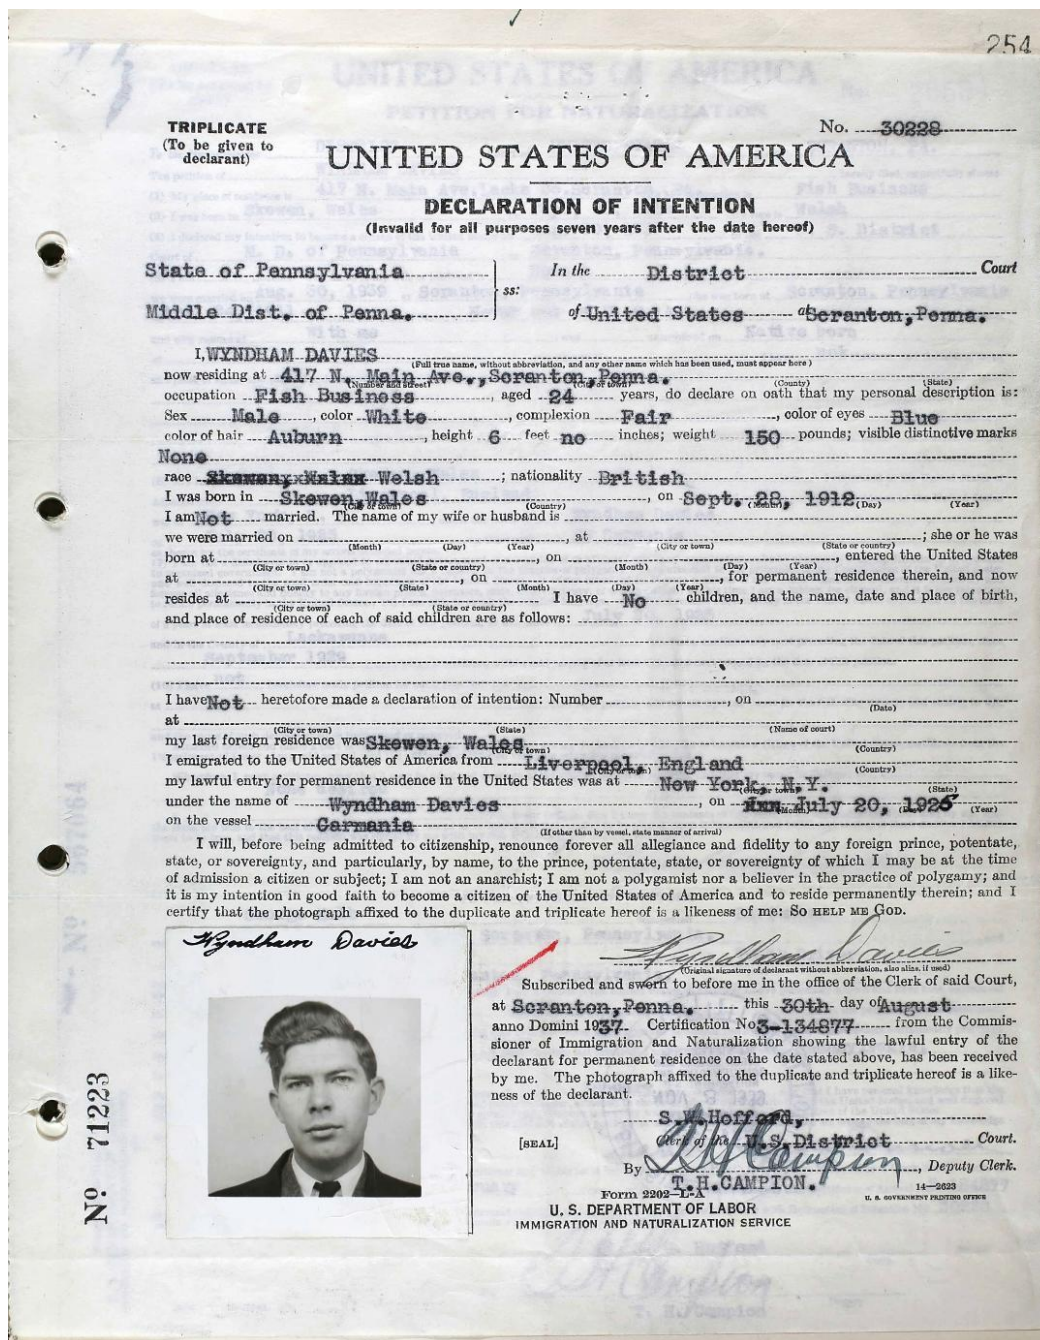 254
TRIPLICATE
(To be given to
declarant)
No. 30228
UNITED STATES OF AMERICA
DECLARATION OF INTENTION
(Invalid for all purposes seven years after the date hereof)
State of Pennsylvania
Middle Dist. of Penna.
ss:
In the District Court
of United States at Scranton, Penna.
I, WYNDHAM DAVIES
(Full true name, without abbreviation, and any other name which has been used, must appear here)
now residing at 417 N. Main Ave., Scranton, Penna.
(Number and street) (City or town) (County) (State)
occupation Fish Business, aged 24 years, do declare on oath that my personal description is:
Sex Male, color White, complexion Fair, color of eyes Blue
color of hair Auburn, height 6 feet no inches; weight 150 pounds; visible distinctive marks
None
race Welsh; nationality British
I was born in Skewen, Wales, on Sept. 28, 1912
(City or town) (Country) (Month) (Day) (Year)
I am Not married. The name of my wife or husband is
we were married on , at ; she or he was
(Month) (Day) (Year) (City or town) (State or country)
born at , on , entered the United States
(City or town) (State or country) (Month) (Day) (Year)
at , on , for permanent residence therein, and now
(City or town) (State) (Month) (Day) (Year)
resides at I have No children, and the name, date and place of birth,
(City or town) (State or country)
and place of residence of each of said children are as follows:
I have Not heretofore made a declaration of intention: Number , on
(Date)
at
(City or town) (State) (Name of court)
my last foreign residence was Skewen, Wales
(City or town) (Country)
I emigrated to the United States of America from Liverpool, England
(City or town) (Country)
my lawful entry for permanent residence in the United States was at New York, N.Y.
(City or town) (State)
under the name of Wyndham Davies, on July 20, 1925
(Month) (Day) (Year)
on the vessel Carmania
(If other than by vessel, state manner of arrival)
I will, before being admitted to citizenship, renounce forever all allegiance and fidelity to any foreign prince, potentate,
state, or sovereignty, and particularly, by name, to the prince, potentate, state, or sovereignty of which I may be at the time
of admission a citizen or subject; I am not an anarchist; I am not a polygamist nor a believer in the practice of polygamy; and
it is my intention in good faith to become a citizen of the United States of America and to reside permanently therein; and I
certify that the photograph affixed to the duplicate and triplicate hereof is a likeness of me: SO HELP ME GOD.
Wyndham Davies
Wyndham Davies
(Original signature of declarant without abbreviation, also alias, if used)
Subscribed and sworn to before me in the office of the Clerk of said Court,
at Scranton, Penna. this 30th day of August
anno Domini 1937. Certification No. 3-134877 from the Commis-
sioner of Immigration and Naturalization showing the lawful entry of the
declarant for permanent residence on the date stated above, has been received
by me. The photograph affixed to the duplicate and triplicate hereof is a like-
ness of the declarant.
S.W.Hofford,
[SEAL] Clerk of the U.S.District Court.
By T H Campion, Deputy Clerk.
T.H.CAMPION.
14—2623
U. S. GOVERNMENT PRINTING OFFICE
Form 2202—L-A
U. S. DEPARTMENT OF LABOR
IMMIGRATION AND NATURALIZATION SERVICE
No 71223